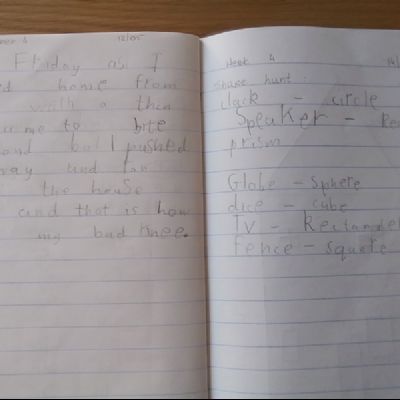 12/05
Friday as I
home from
with a then
me to bite
and but I pushed
and
the house
and that is how
my bad knee.
Week 4
Shape hunt:
clock - circle
Speaker - Rec
prism
Globe - sphere
dice - cube
TV - Rectangle
fence - square